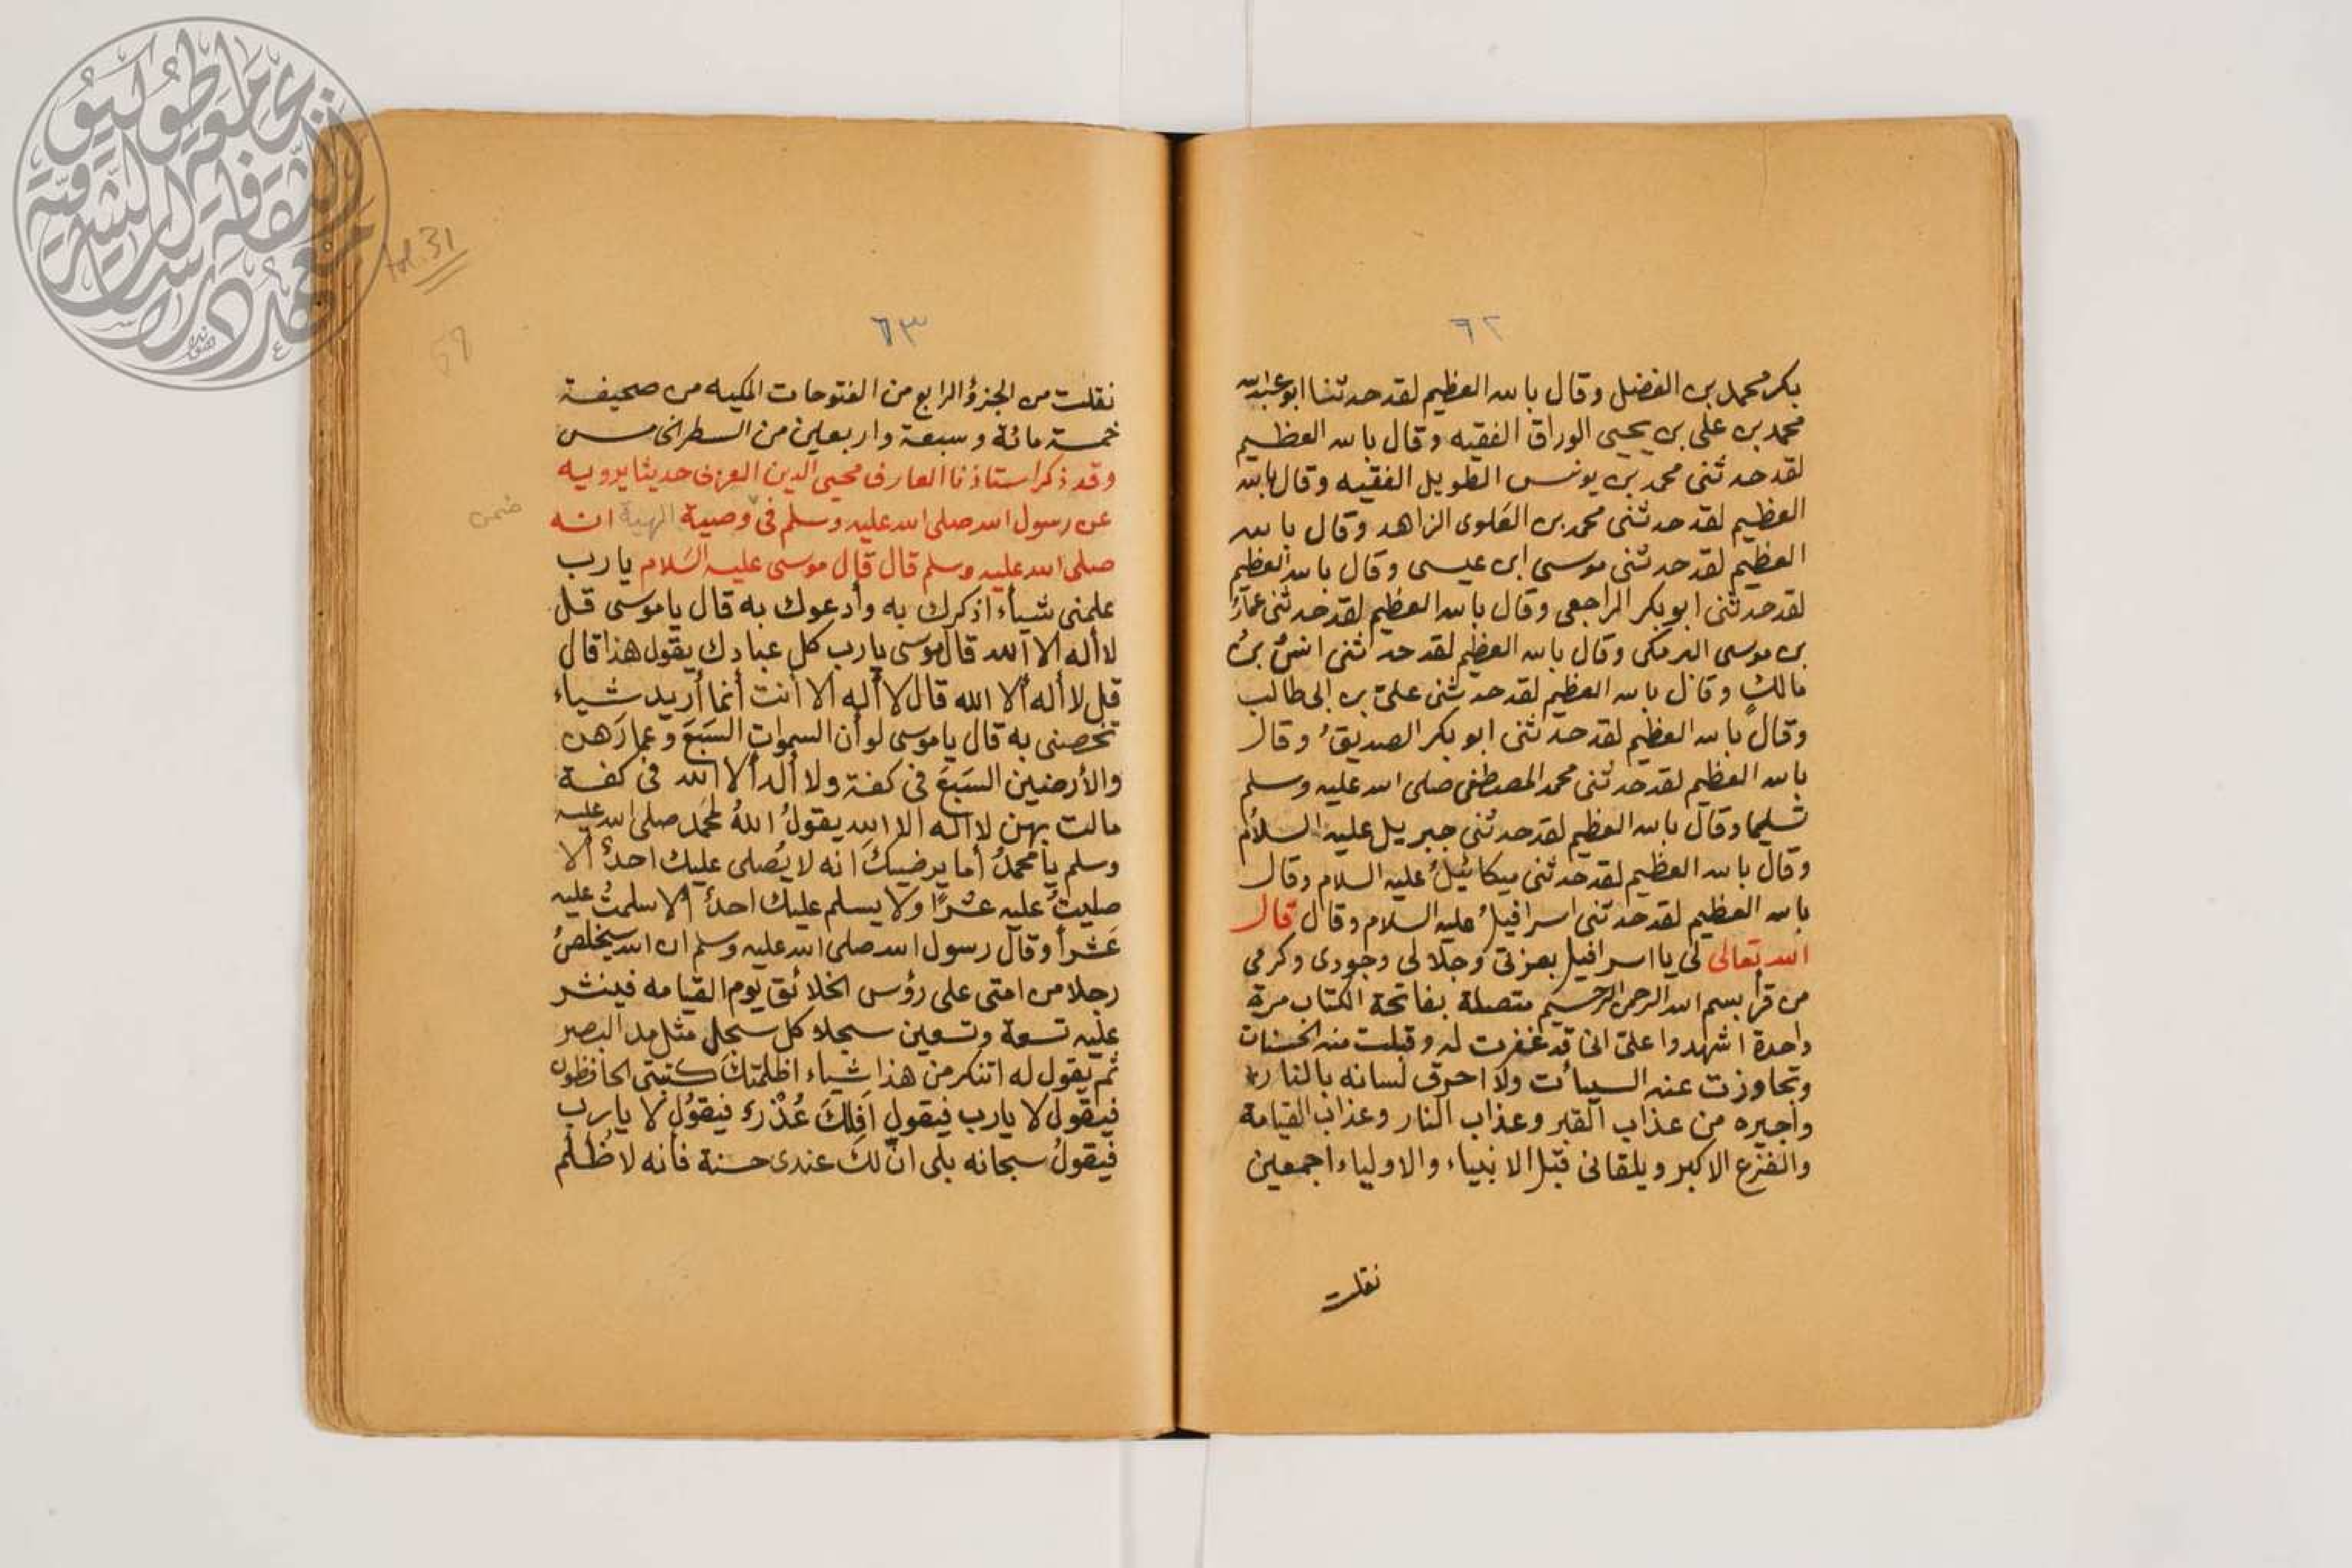 ٦٢
بكر محمد بن الفضل وقال بالله العظيم لقد حدثنا ابو عبدالله
محمد بن على بن يحيى الوراق الفقيه وقال بالله العظيم
لقد حدثنى محمد بن يونس الطويل الفقيه وقال بالله
العظيم لقد حدثنى محمد بن العَلوى الزاهد وقال بالله
العظيم لقد حدثنى موسى ابن عيسى وقال بالله العظيم
لقد حدثنى ابو بكر الراجعى وقال بالله العظيم لقد حدثنى عمارُ
بن موسى البرمكى وقال بالله العظيم لقد حدثنى انسُ بنُ
مالكٍ وقال بالله العظيم لقد حدثنى علىّ بن ابى طالب
وقال بالله العظيم لقد حدثنى ابو بكر الصديقُ وقال
بالله العظيم لقد حدثنى محمد المصطفى صلى الله عليه وسلم
تسليما وقال بالله العظيم لقد حدثنى جبريل عليه السلام
وقال بالله العظيم لقد حدثنى ميكائيلُ عليه السلام وقال
بالله العظيم لقد حدثنى اسرافيلُ عليه السلام وقال قال
الله تعالى لى يا اسرافيل بعزتى وجلالى وجودى وكرمى
من قرأ بسم الله الرحمن الرحيم متصلة بفاتحة الكتاب مرة
واحدة اشهدوا علىّ انى قد غفرت له وقبلت منه الحسنات
وتجاوزت عنه السيأت ولا احرق لسانه بالنار
واجيره من عذاب القبر وعذاب النار وعذاب القيامة
والفزع الاكبر ويلقانى قبل الانبياء والاولياء اجمعين
نقلت
fol. 31
59
٦٣
نقلت من الجزؤ الرابع من الفتوحات المكيه من صحيفة
خمسة مائة وسبعة واربعلين من السطر الخامس
وقد ذكر استاذنا العارف محيى الدين العربى حديثا يرويه
عن رسول الله صلى الله عليه وسلم فى وصية الهية انه
ضمن
صلى الله عليه وسلم قال قال موسى عليه السَلام يا رب
علمنى شيأء اذكرك به وأدعوك به قال يا موسى قل
لا أله الا الله قال موسى يا رب كل عبادك يقول هذا قال
قل لا أله ألا الله قال لا أله ألا أنت أنما أريد شياء
تخصنى به قال يا موسى لو أن السموات السَبَعَ وعمارَهن
والأرضين السَبَعَ فى كفة ولا أله ألا الله فى كفة
مالت بهن لا اله الا الله يقولُ اللهُ لمحَمد صلى الله عليه
وسلم يا محمدُ أما يرضيكَ انه لا يُصلى عليك احدُ ألا
صليتُ عليه عشرًا ولا يسلم عليك احدُ ألا سلمتُ عليه
عَشرا وقال رسول الله صلى الله عليه وسلم ان الله سيخلصُ
رجلا من امتى على رؤس الخلائق يوم القيامه فينشر
عليه تسعة وتسعين سجلا كل سجل مثل مد البصر
ثم يقول له اتنكر من هذا شياء اظلمتكَ كتبتى الحافظون
فيقول لا يا رب فيقول اَفلكَ عُذْرٌ فيقوُل لا يا رب
فيقولُ سبحانه بلى انّ لكَ عندى حسنة فأنه لا ظُلمَ